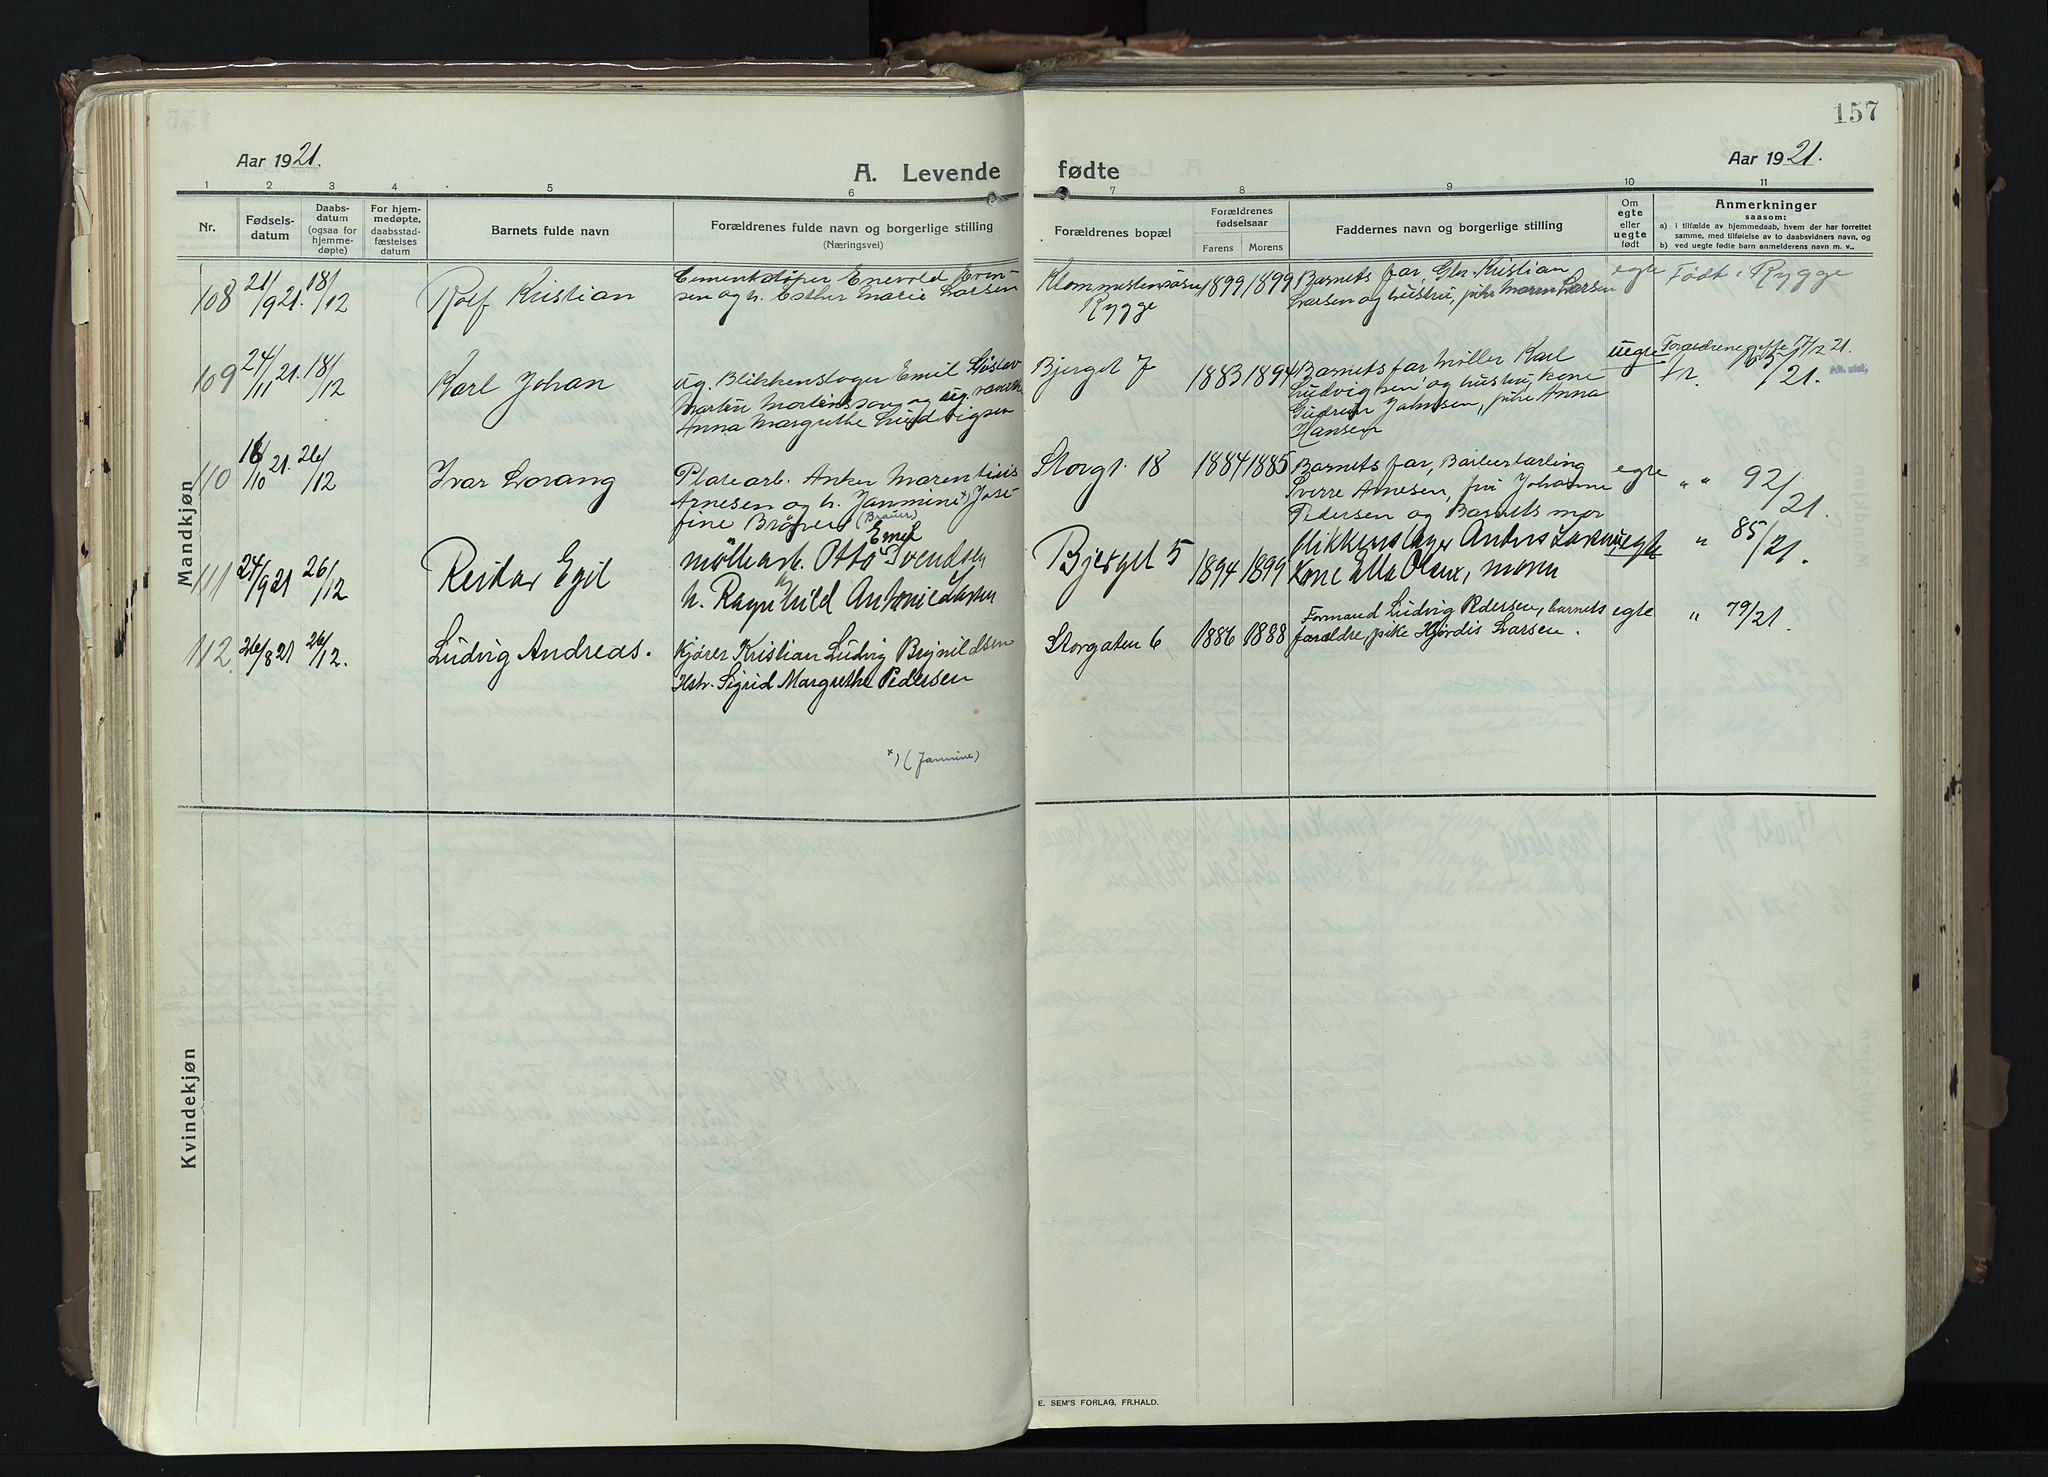 157
Aar 1921.
A. Levende
fødte
Aar 1921.
1 2 3 4 5 6 7 8 9 10 11
Nr.
Fødsels-
datum
Daabs-
datum
(ogsaa for
hjemme-
døpte)
For hjem-
medøpte,
daabsstad-
fæstelses
datum
Barnets fulde navn
Forældrenes fulde navn og borgerlige stilling
(Næringsvei)
Forældrenes bopæl
Forældrenes
fødselsaar
Farens Morens
Faddernes navn og borgerlige stilling
Om
egte
eller
uegte
født
Anmerkninger
saasom:
a) i tilfælde av hjemmedaab, hvem der har forrettet
samme, med tilføielse av to daabsvidners navn, og
b) ved uegte fødte barn anmelderens navn m. v..
Mandkjøn
108 21/9 21. 18/12 Rolf Kristian
Cementstøper Enevold Even-
sen og h. Esther Marie Larsen
Rygge
1899 1899
Barnets far, Kristian
Larsen og hustru, pike Maren Larsen
egte
Født i Rygge
109 24/11 21. 18/12 Karl Johan
ug. Blikkenslager Emil Gustav
Martin Mortensson og ug.
Anna Margrethe Ludvigsen
Bjerget 7
1883 1894
Barnets far, Møller Karl
Ludvigsen og hustru, kone
Gudrun Johnsen, pike Anna
Hansen
uegte
Forældrene gifte 17/12 21.
fr. 105/21.
110 16/10 21. 26/12 Ivar Lorang
Platearb. Anker Marentius
Arnesen og h. Janmine x) Jose-
fine Brörer (Brauer)
Storgt. 18
1884 1885
Barnets far,
Sverre Arnesen, fru Johanne
Pedersen og Barnets mor
egte
" " 92/21.
111 24/9 21 26/12 Reidar Egil
Emil
møllearb. Otto Svendsen
h. Ragnhild Antonie Larsen
Bjerget 5
1894 1899
blikkenslager Anders Larsen
Kone Ella Olsen, moren
egte
" 85/21.
112 26/8 21 26/12. Ludvig Andreas.
Kjører Kristian Ludvig Brynildsen
Hstr. Sigrid Margrethe Pedersen
Storgaten 6
1886 1888
Formand Ludvig Pedersen, barnets
forældre, pike Hjørdis Larsen.
egte
" 79/21.
x) (Janmine)
Kvindekjøn
E. SEM'S FORLAG, FR.HALD.